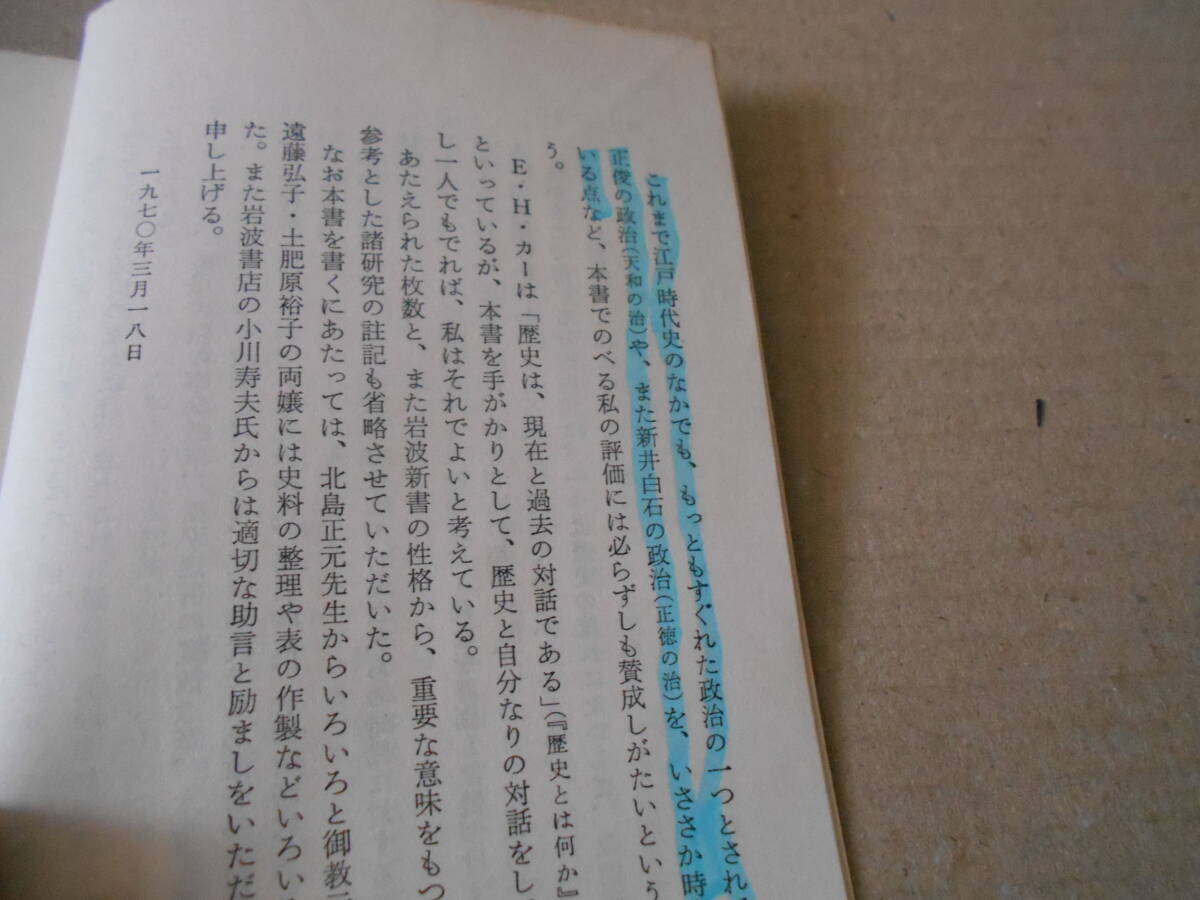 これまで江戸時代史のなかでも、もっともすぐれた政治の一つとされ
正俊の政治（天和の治）や、また新井白石の政治（正徳の治）を、いささか時
いる点など、本書でのべる私の評価には必らずしも賛成しがたいという
う。
E・H・カーは「歴史は、現在と過去の対話である」（『歴史とは何か』
といっているが、本書を手がかりとして、歴史と自分なりの対話をし
し一人でもでれば、私はそれでよいと考えている。
あたえられた枚数と、また岩波新書の性格から、重要な意味をもつ
参考とした諸研究の註記も省略させていただいた。
なお本書を書くにあたっては、北島正元先生からいろいろと御教
遠藤弘子・土肥原裕子の両嬢には史料の整理や表の作製などいろい
た。また岩波書店の小川寿夫氏からは適切な助言と励ましをいただ
申し上げる。
一九七〇年三月一八日